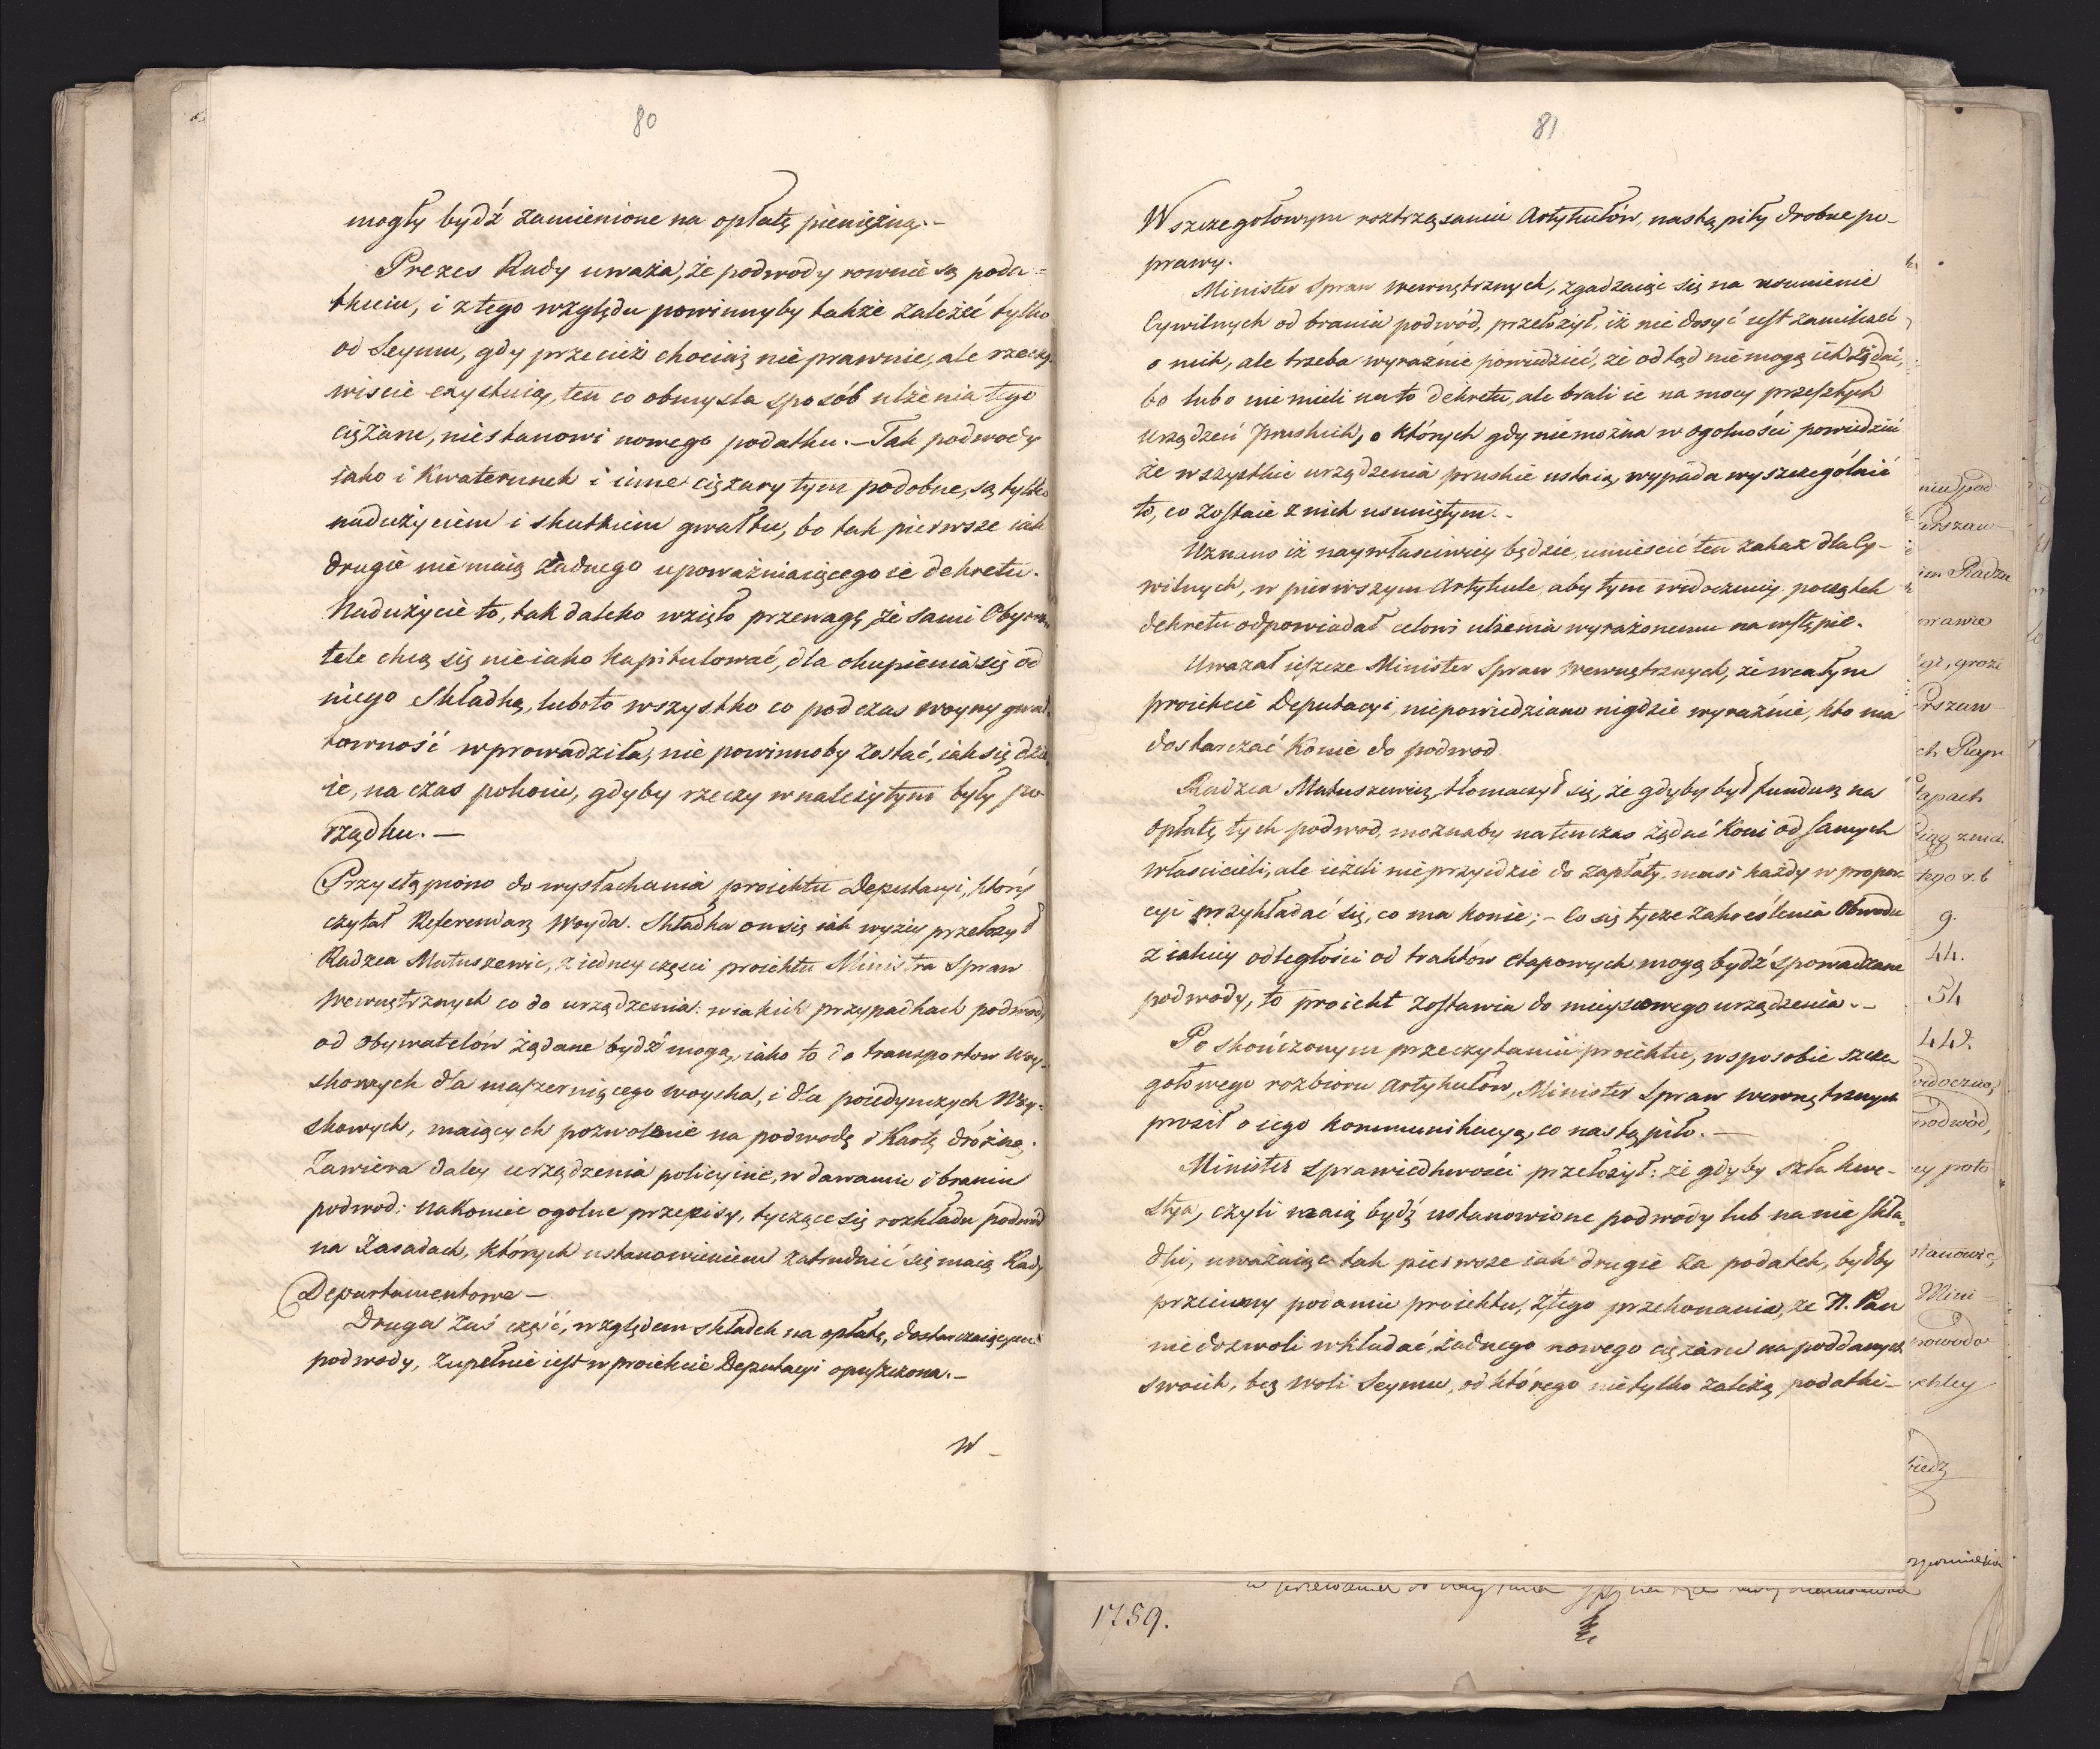 80
mogły bydź zamienione na opłatę pieniężną.–
Prezes Rady uważa, że podwody rownie są poda=
tkiem, i z tego względu powinnyby także zależeć tylko
od Seymu, gdy przecież chociaż nieprawnie, ale rzeczy-
wiscie exystuią, ten co obmysla sposób ulżenia tego
ciężaru, niestanowi nowego podatku.– Tak podwody
iako i Kwaterunek i inne ciężary tym podobne, są tylko
nadużyciem i skutkiem gwałtu, bo tak pierwsze iak
drugie nie maią żadnego upoważniaiącego ie dekretu.
Nadużycie to, tak daleko wzięło przewagę, że sami Obywa-
tele chcą się nieiako kapitulować, dla okupienia się od
niego Składką, luboto wszystko co podczas woyny gwał-
towność wprowadziła, nie powinnoby zostać, iak się dzie-
ie, na czas pokoiu, gdyby rzeczy w należytym były po-
rządku.–
Przystąpiono do wysłuchania proiektu Deputacyi, który
czytał Referendarz Woyda. Składka on się iak wyżey przełożył
Radzca Matuszewic, z iedney części proiektu Ministra Spraw
Wewnętrznych co do urządzenia: w iakich przypadkach podwody
od Obywatelów żądane bydź mogą, iako to do transportow woy-
skowych dla maszeruiącego woyska, i dla poiedynczych Woy-
skowych, maiących pozwolenie na podwodę i Kartę dróżną.
Zawiera daley urządzenia policyine, w dawaniu i braniu
podwod; nakoniec ogolne przepisy, tyczące się rozkładu podwod
na zasadach, których ustanowieniem zatrudnić się maią Rady
Departamentowe –
Druga zaś część, względem składek na opłatę, dostarczaiącym
podwody, zupełnie iest w proiekcie Deputacyi opuszczona.–
W –
81
W szczegołowym roztrząsaniu Artykułów, nastąpiły drobne po-
prawy.
Minister Spraw Wewnętrznych, zgadzaiąc się na usunienie
Cywilnych od brania podwód, przełożył, iż nie dosyć iest zamilczeć
o nich, ale trzeba wyraźnie powiedzieć, że odtąd nie mogą ich żądać,
bo lubo nie mieli na to dekretu, ale brali ie na mocy przeszłych
Urządzeń Pruskich, o których gdy niemożna w ogolności powiedzieć
że wszystkie urządzenia pruskie ustaią, wypada wyszczególnić
to, co zostaie z nich usuniętym.–
Uznano iż naywłasciwiey będzie, umiescic ten zakaz dla Cy-
wilnych, w pierwszym Artykule, aby tym widoczniey początek
dekretu odpowiadał celowi ulżenia wyrażonemu na wstępie.
Uważał ieszcze Minister Spraw Wewnętrznych, że w całym
proiekcie Deputacyi, niepowiedziano nigdzie wyraźnie, kto ma
dostarczać Konie do podwod
Radzca Matuszewicz, tłomaczył się, że gdyby był fundusz na
opłatę tych podwod, możnaby na tenczas żądać Koni od samych
właścicieli, ale ieżeli nie przyidzie do zapłaty, musi każdy w propor-
cyi przykładać się, co ma konie;– Co się tycze zakreślenia Obwodu
z iakiey odległości od traktów etapowych mogą bydź spowadzane
podwody, to proiekt zostawia do mieyscowego urządzenia.–
Po skończonym przeczytaniu proiektu, w sposobie szcze-
gołowego rozbioru Artykułów, Minister Spraw Wewnętrznych
prosił o iego kommunikacyą, co nastąpiło.–
Minister Sprawiedliwości przełożył: że gdyby szła kwe-
stya, czyli maią bydź ustanowione podwody lub na nie skła-
dki, uważaiąc tak pierwsze iak drugie za podatek, byłby
przeciwny podaniu proiektu, z tego przekonania, że N. Pan
nie dozwoli wkładać żadnego nowego ciężaru na poddanych
swoich, bez woli Seymu, od którego nietylko zależą podatki –
1789.
niu pod
Warszaw
Radzc
prawie
groźi
Warszaw
Etapach
tego r. b
9.
44.
54
448.
widoczno,
podwód,
poto
stanowić,
Mini-
powodo